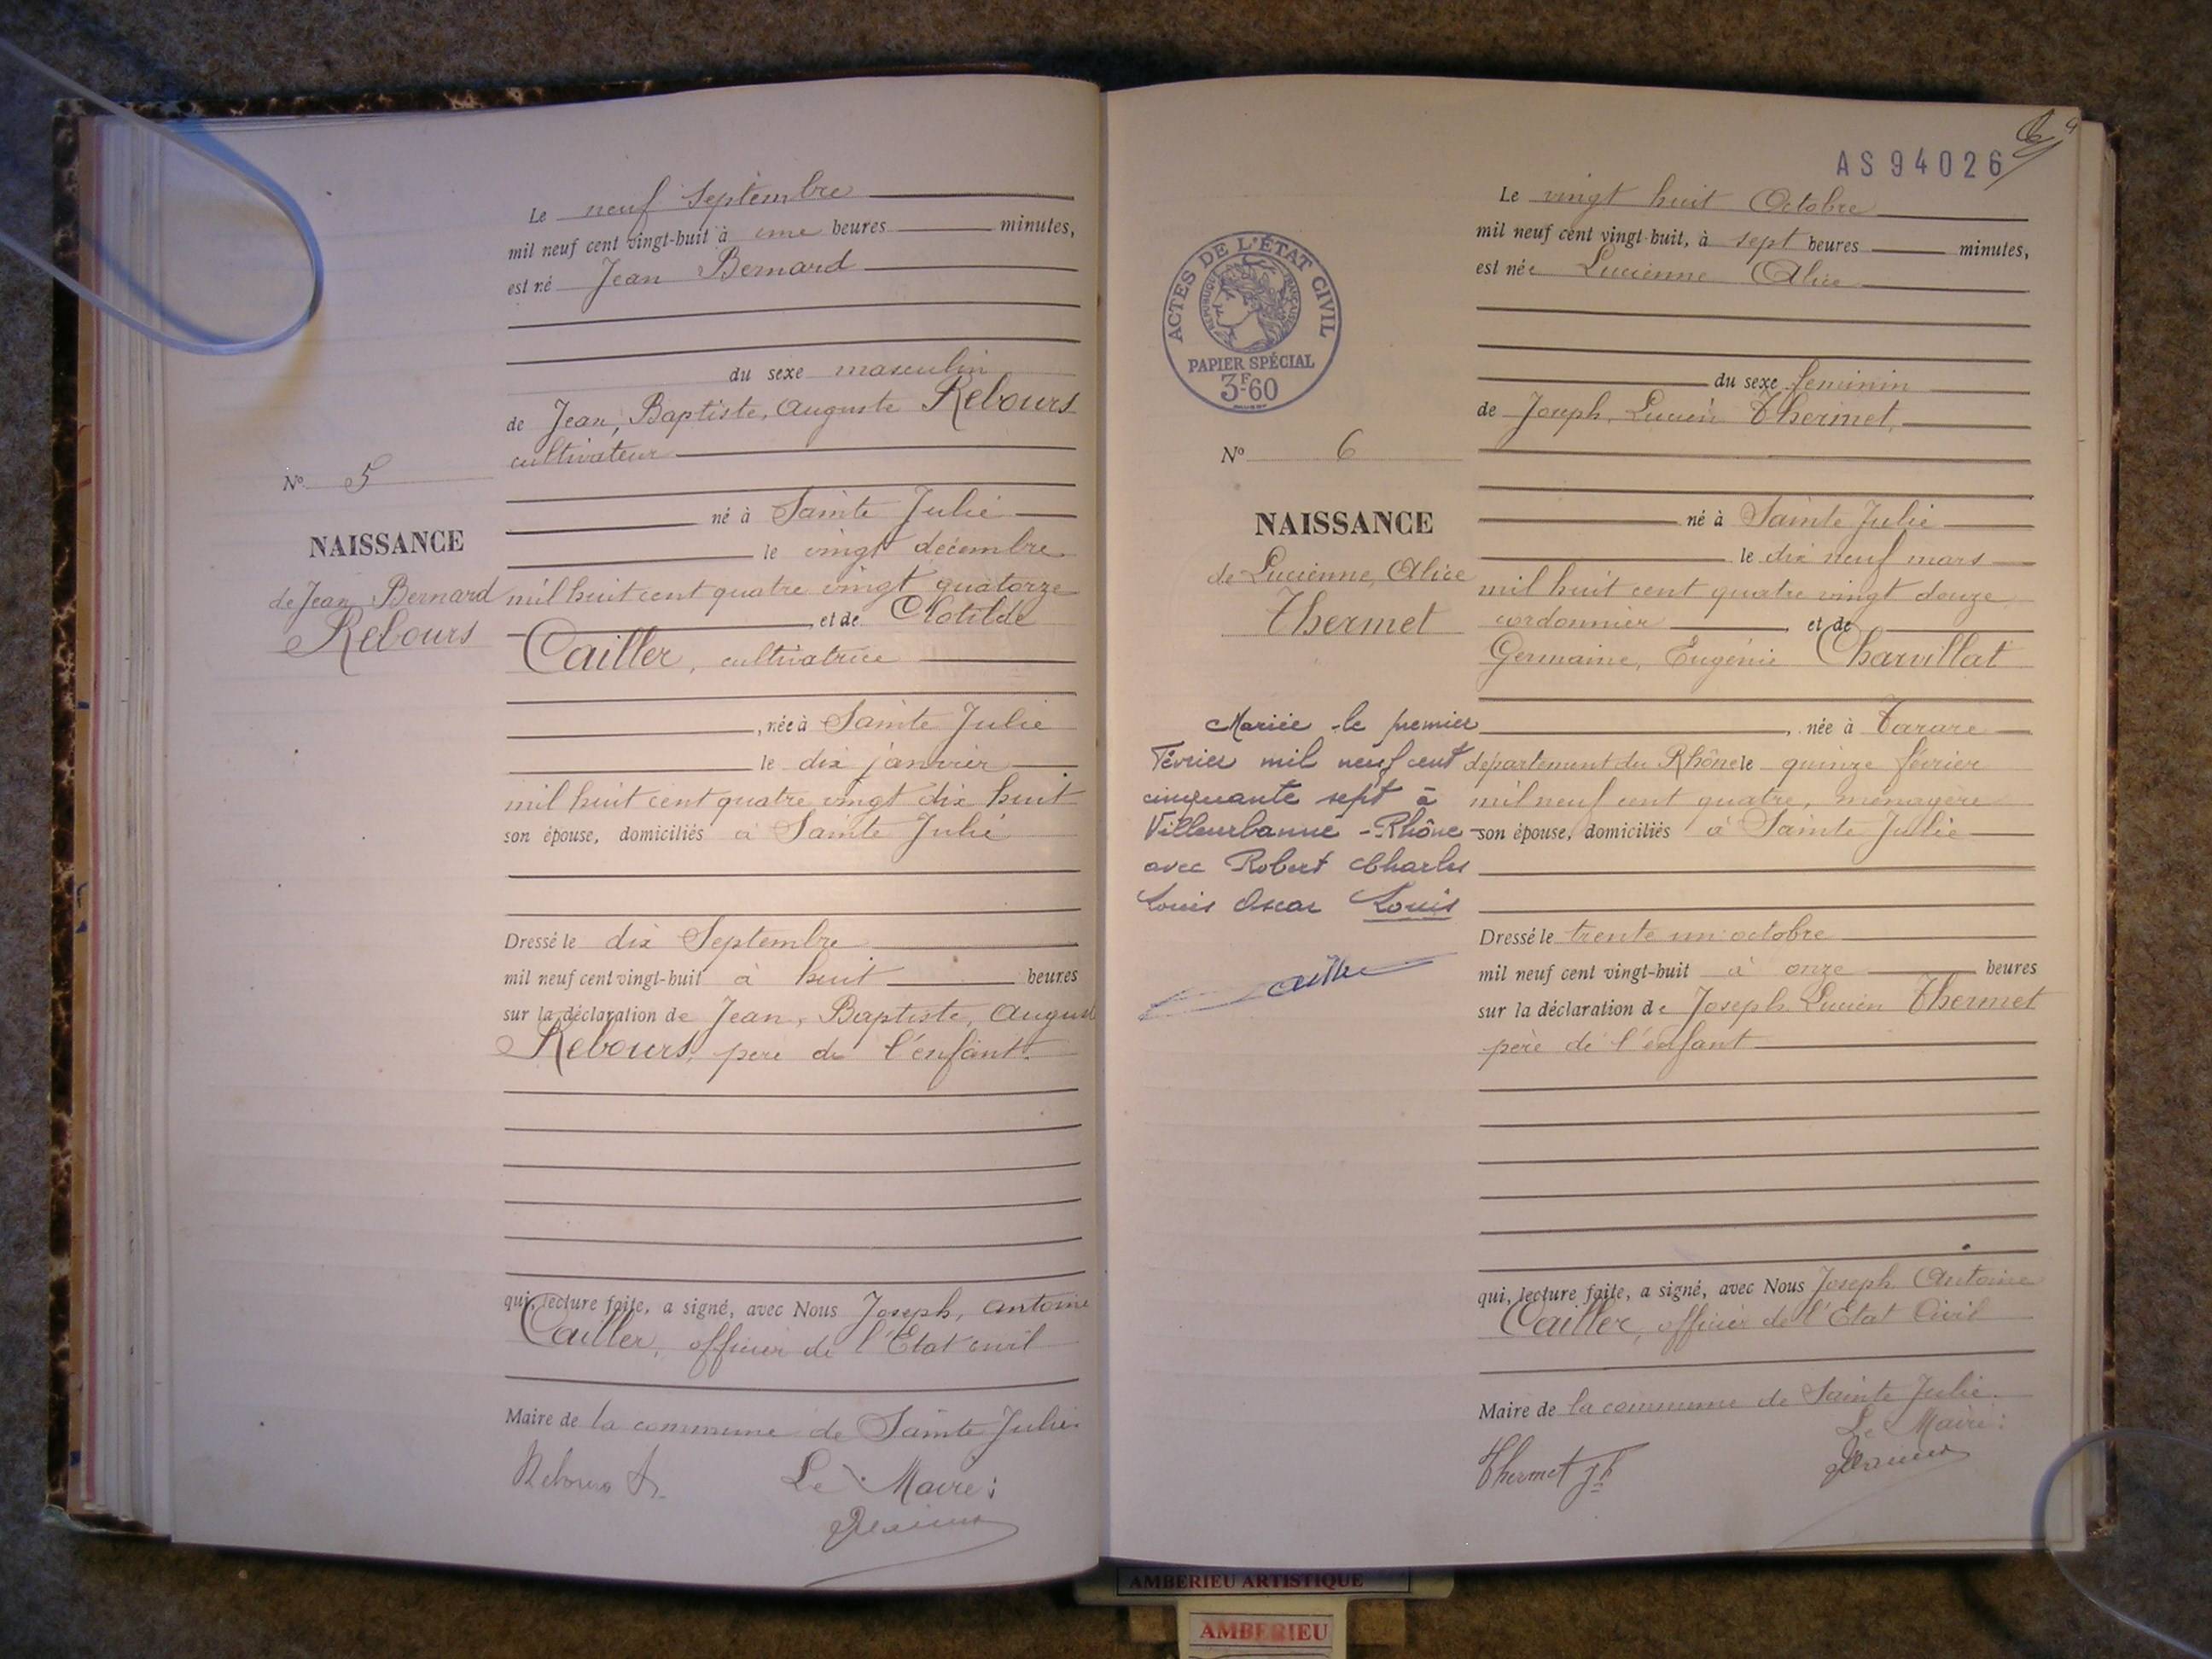 Le neuf Septembre
mil neuf cent vingt-huit à une heures minutes,
est né Jean Bernard
du sexe masculin
de Jean, Baptiste, Auguste Rebours
cultivateur
né à Sainte Julie
le vingt décembre
mil huit cent quatre vingt quatorze
, et de Clotilde
Cailler, cultivatrice
, née à Sainte Julie
le dix janvier
mil huit cent quatre vingt dix huit
son épouse, domiciliés à Sainte Julie
Dressé le dix Septembre
mil neuf cent vingt-huit à huit heures
sur la déclaration de Jean, Baptiste, August
Rebours, père de l'enfant.
qui, lecture faite, a signé, avec Nous Joseph, Antoine
Cailler, officier de l'Etat civil
Maire de la commune de Sainte Julie.
Rebours A.
Le Maire :
No 5
NAISSANCE
de Jean Bernard
Rebours
AS94026
Le vingt huit Octobre
mil neuf cent vingt-huit, à sept heures minutes,
est née Lucienne Alice
du sexe feminin
de Joseph, Lucien Thermet,
né à Sainte Julie
le dix neuf mars
mil huit cent quatre vingt douze
cordonnier , et de
Germaine, Eugénie Charvillat
, née à Tarare
département du Rhône le quinze février
mil neuf cent quatre, ménagère
son épouse, domiciliés à Sainte Julie
Dressé le trente un octobre
mil neuf cent vingt-huit à onze heures
sur la déclaration de Joseph Lucien Thermet
père de l'enfant
qui, lecture faite, a signé, avec Nous Joseph Antoine
Cailler, officier de l'Etat Civil
Maire de la commune de Sainte Julie.
Le Maire :
Thermet Jh
ACTES DE L'ÉTAT CIVIL
RÉPUBLIQUE FRANÇAISE
PAPIER SPÉCIAL
3F60
No 6
NAISSANCE
de Lucienne, Alice
Thermet
Mariée le premier
Février mil neuf cent
cinquante sept à
Villeurbanne - Rhône -
avec Robert Charles
Louis Oscar Louis
AMBERIEU ARTISTIQUE
AMBERIEU